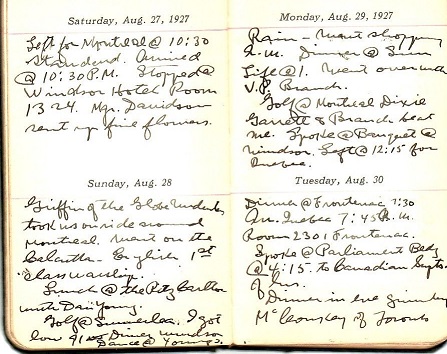 Saturday, Aug. 27, 1927
Left for Montreal @ 10:30
Standard. Arrived
@ 10:30 P.M. Stopped @
Windsor Hotel Room
1324. Mgr. Davidson
sent up fine flowers.
Sunday, Aug. 28
Griffin of the Globe
took us on ride around
Montreal. Went on the
English 1st
class warship.
Lunch @ the Ritz Carlton
with Dan Young
Golf @ I got
low 91 Dinner Windsor
Dance @ Young's.
Monday, Aug. 29, 1927
Rain - Went shopping
A.M. Dinner @ Sun
Life @ 1. Went over with
V.P. Branch.
Golf @ Montreal Dixie
Garrett & Branch beat
me. Spoke @ Banquet @
Windsor. Left @ 12:15 for
Quebec.
Tuesday, Aug. 30
Dinner @ Frontenac 7:30
Arr. Quebec 7:45 A.M.
Room 2301 Frontenac.
Spoke @ Parliament Bldg
@ 4:15. to Canadian Supts.
of Ins.
Dinner in eve given by
of Toronto